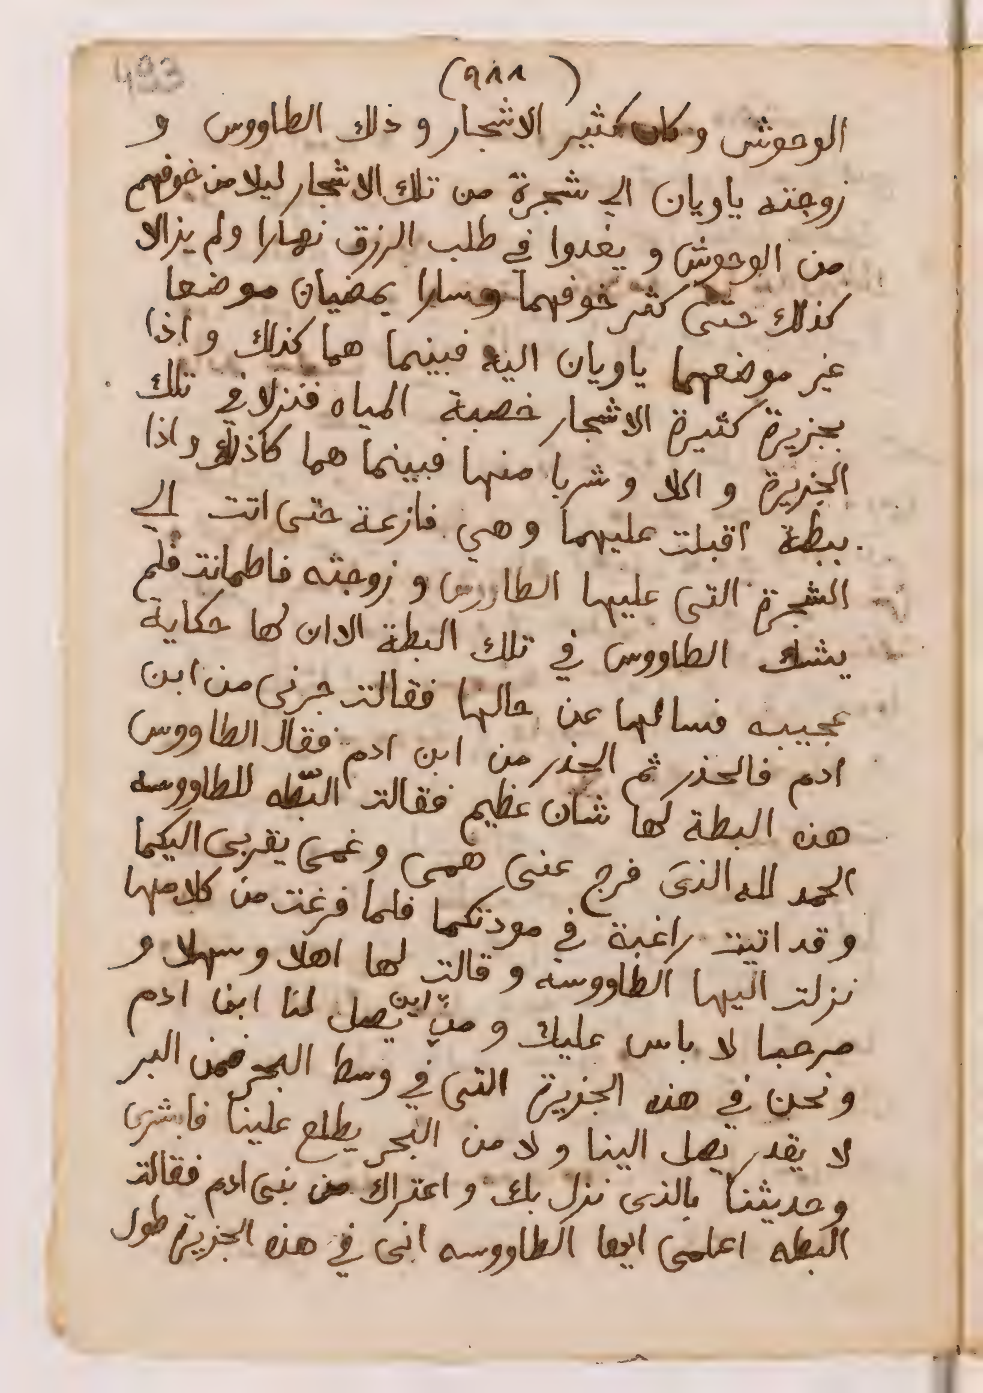 493
(٩٨٨)
الوحوش وكان كثير الاشجار و ذلك الطاووس و
زوجته ياويان الي شجرة من تلك الاشجار ليلا من خوفهم
من الوحوش و يغدوا في طلب الرزق نهارا ولم يزالا
كذلك حتى كثر خوفهما وسارا يمضيان موضعا
غير موضعهما ياويان اليه فبينما هما كذلك و اذا
بجزيرة كثيرة الاشجار خصبة المياه فنزلا في تلك
الجزيرة و اكلا و شربا منها فبينما هما كاذلك و اذا
ببطة اقبلت عليهما و هي فازعة حتى اتت الي
الشجرة التى عليها الطاووس و زوجته فاطمانت فلم
يشك الطاووس في تلك البطة الا ان لها حكاية
عجيبه فسالها عن حالها فقالت جرنى من ابن
ادم فالحذر ثم الحذر من ابن ادم فقال الطاووس
هذه البطة لها شان عظيم فقالت البّطه للطاووسه
الحمد لله الذى فرج عنى همى و غمى بقربى اليكما
و قد اتيت راغبة في مودتكما فلما فرغت من كلامها
نزلت اليها الطاووسه و قالت لها اهلا و سهلا و
مرحبا لا باس عليك و من اين يصل لنا ابنا ادم
و نحن في هذه الجزيرة التى في وسط البحر فمن البر
لا يقدر يصل الينا و لا من البحر يطلع علينا فابشرى
و حديثنا بالذى نزل بك و اعتراك من بنى ادم فقالت
البطه اعلمى ايها الطاووسه انى في هذه الجزيرة طول